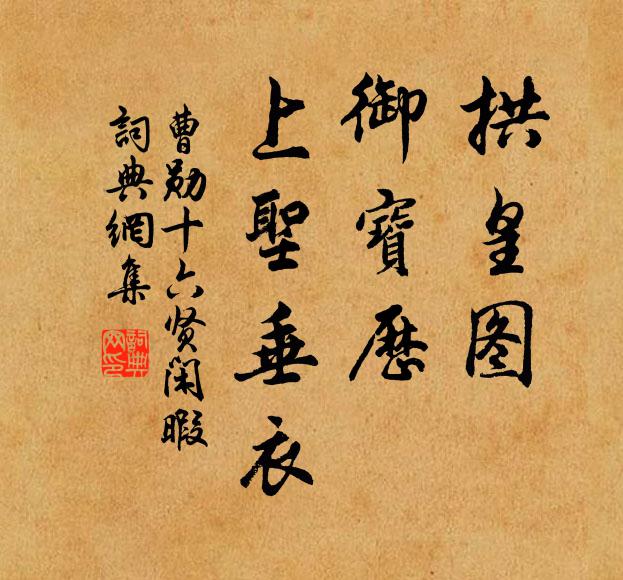 拱皇图
御寶歷
上聖垂衣
曹勋十六贤閑暇
詞典網集
詞典网印